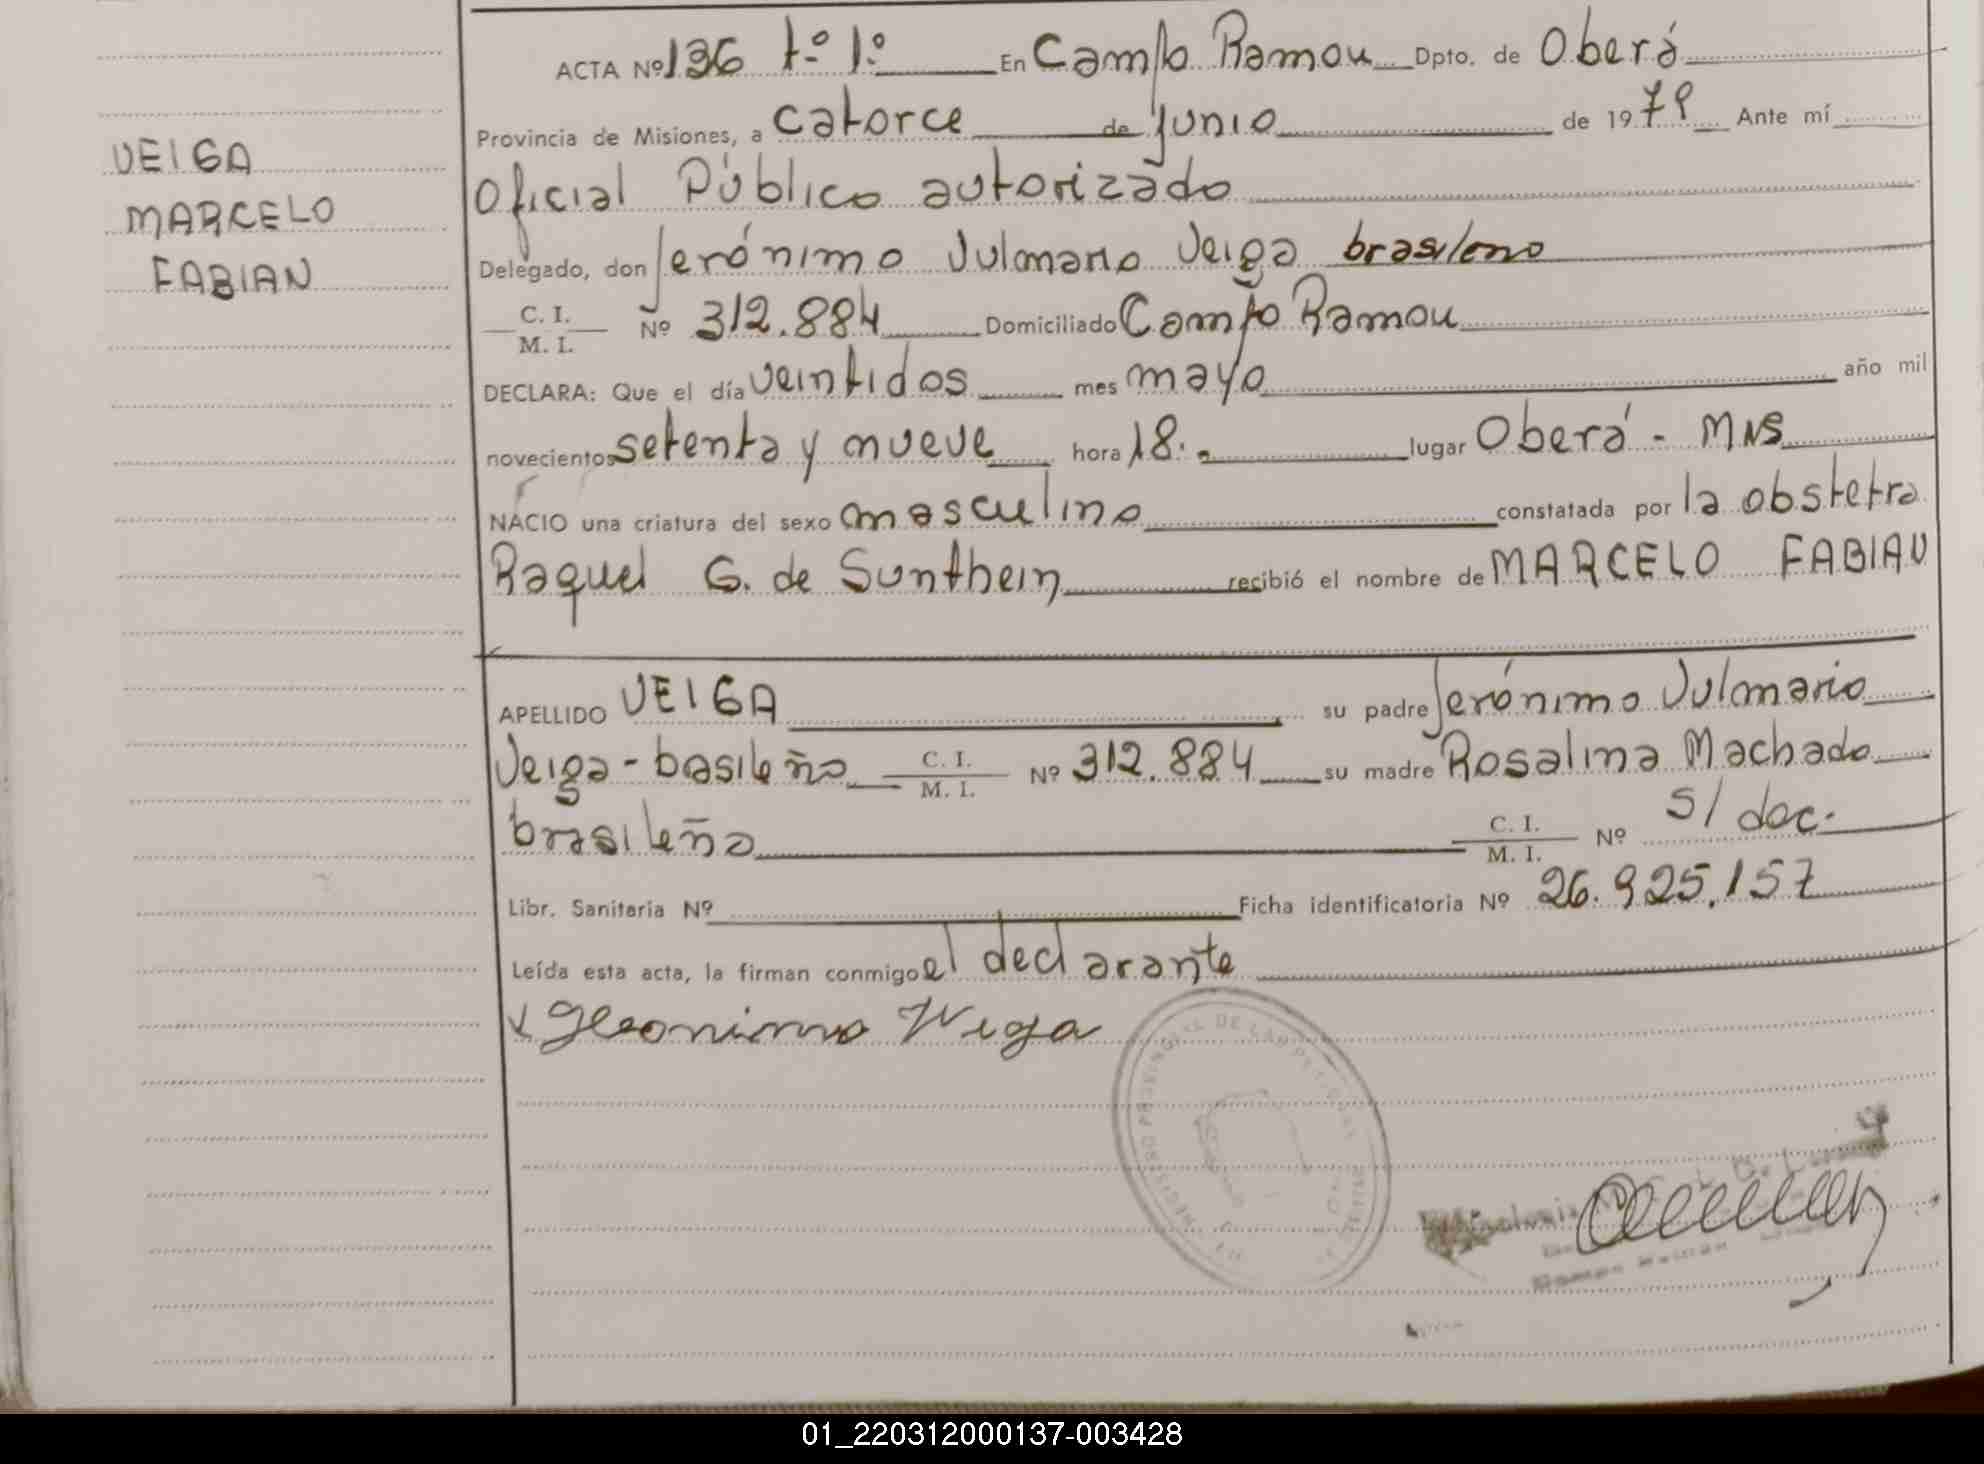 VEIGA
MARCELO
FABIAN
ACTA Nº 136 tº 1º En Campo Ramon Dpto. de Oberá
Provincia de Misiones, a catorce de junio de 1979 Ante mí
Oficial Público autorizado
Delegado, don Jerónimo Vulmario Veiga brasileno
C. I.
M. I. Nº 312.884 Domiciliado Campo Ramon
DECLARA: Que el día veintidos mes mayo año mil
novecientos setenta y nueve hora 18. lugar Oberá - MNS
NACIO una criatura del sexo masculino constatada por la obstetra
Raquel G. de Sunthein recibió el nombre de MARCELO FABIAN
APELLIDO VEIGA su padre Jerónimo Vulmario
Veiga - basileño C. I. M. I. Nº 312.884 su madre Rosalina Machado
brasileña C. I. M. I. Nº s/ doc.
Libr. Sanitaria Nº Ficha identificatoria Nº 26.925.157
Leída esta acta, la firman conmigo el declarante
x Geronimo Veiga
REGISTRO PROVINCIAL DE LAS PERSONAS
01_220312000137-003428